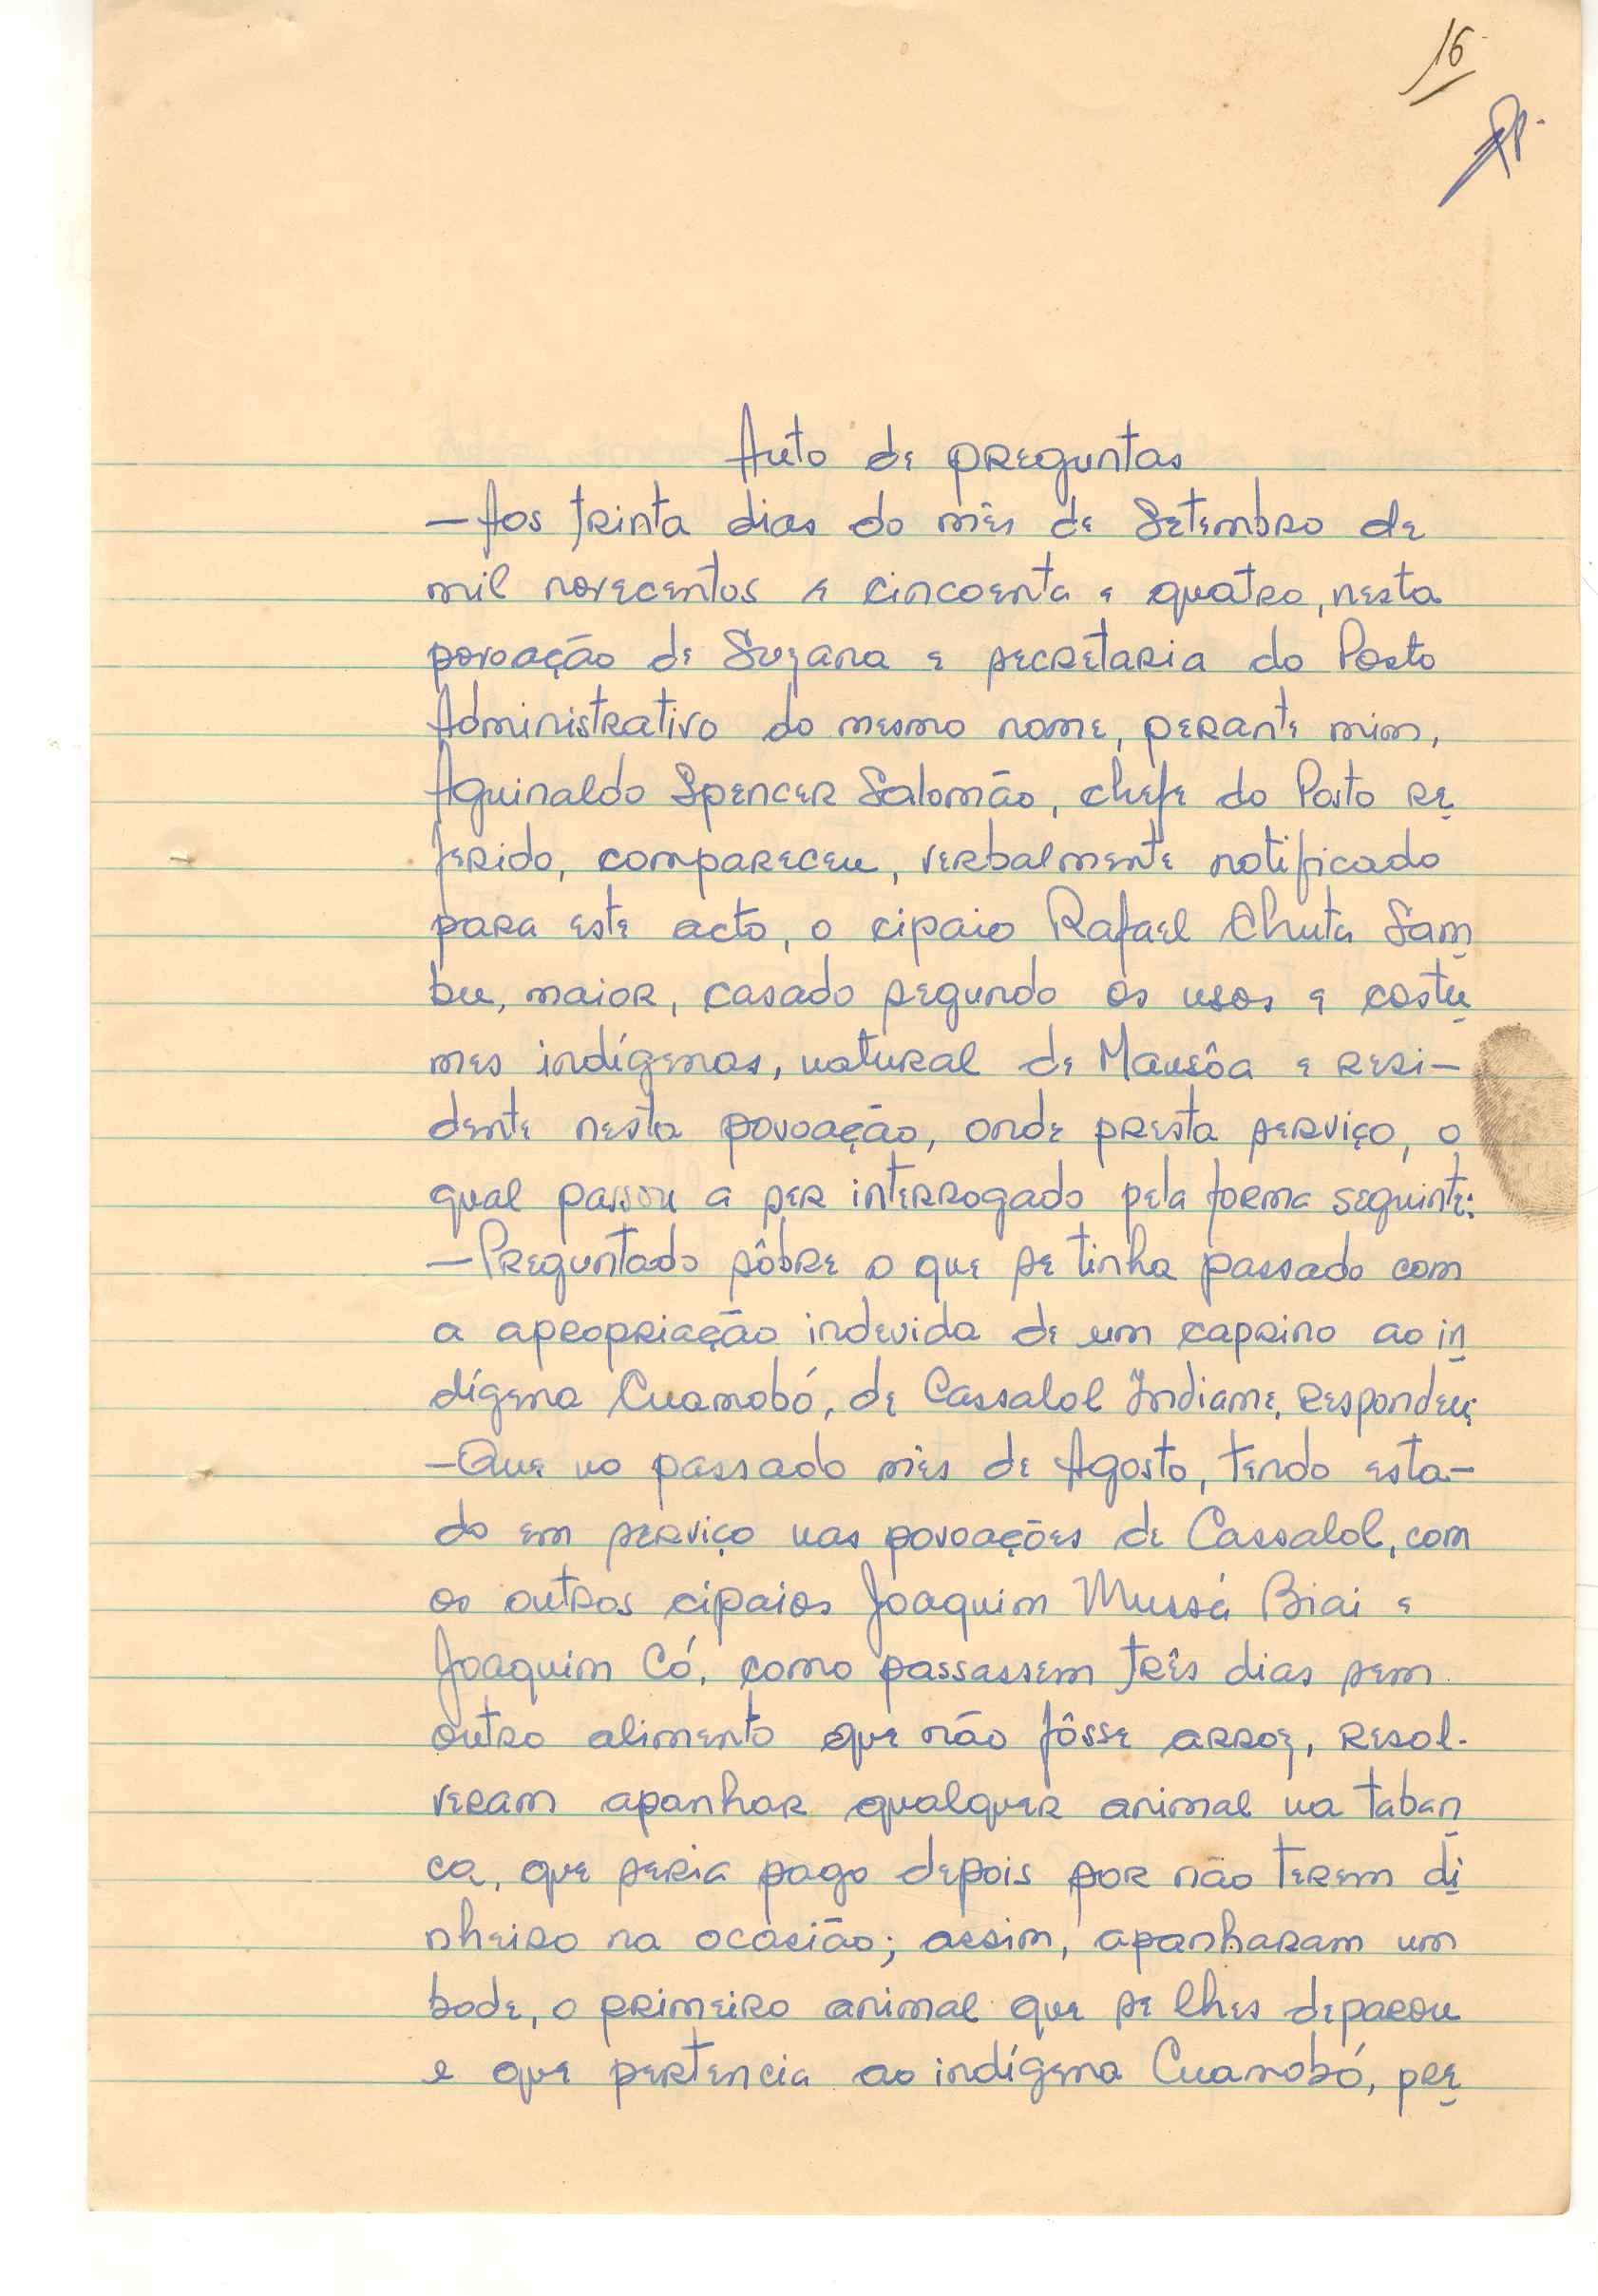 16
Auto de preguntas
—Aos trinta dias do mês de Setembro de
mil novecentos e cincoenta e quatro, nesta
povoação de Suzana e secretaria do Posto
Administrativo do mesmo nome, perante mim,
Aguinaldo Spencer Salomão, chefe do Posto re
ferido, compareceu, verbalmente notificado
para este acto, o cipaio Rafael Chuta Sam
bu, maior, casado segundo os usos e costu
mes indígenas, natural de Mansôa e resi-
dente nesta povoação, onde presta serviço, o
qual passou a ser interrogado pela forma seguinte:
—Preguntado sôbre o que se tinha passado com
a apropriação indevida de um caprino ao in
dígena Cuanobó, de Cassalol Indiame, respondeu:
—Que no passado mês de Agosto, tendo esta-
do em serviço nas povoações de Cassalol, com
os outros cipaios Joaquim Mussá Biai e
Joaquim Có, como passassem três dias sem
outro alimento que não fôsse arroz, resol-
veram apanhar qualquer animal na taban
ca, que seria pago depois por não terem di
nheiro na ocasião; assim, apanharam um
bode, o primeiro animal que se lhes deparou
e que pertencia ao indígena Cuanobó, pre